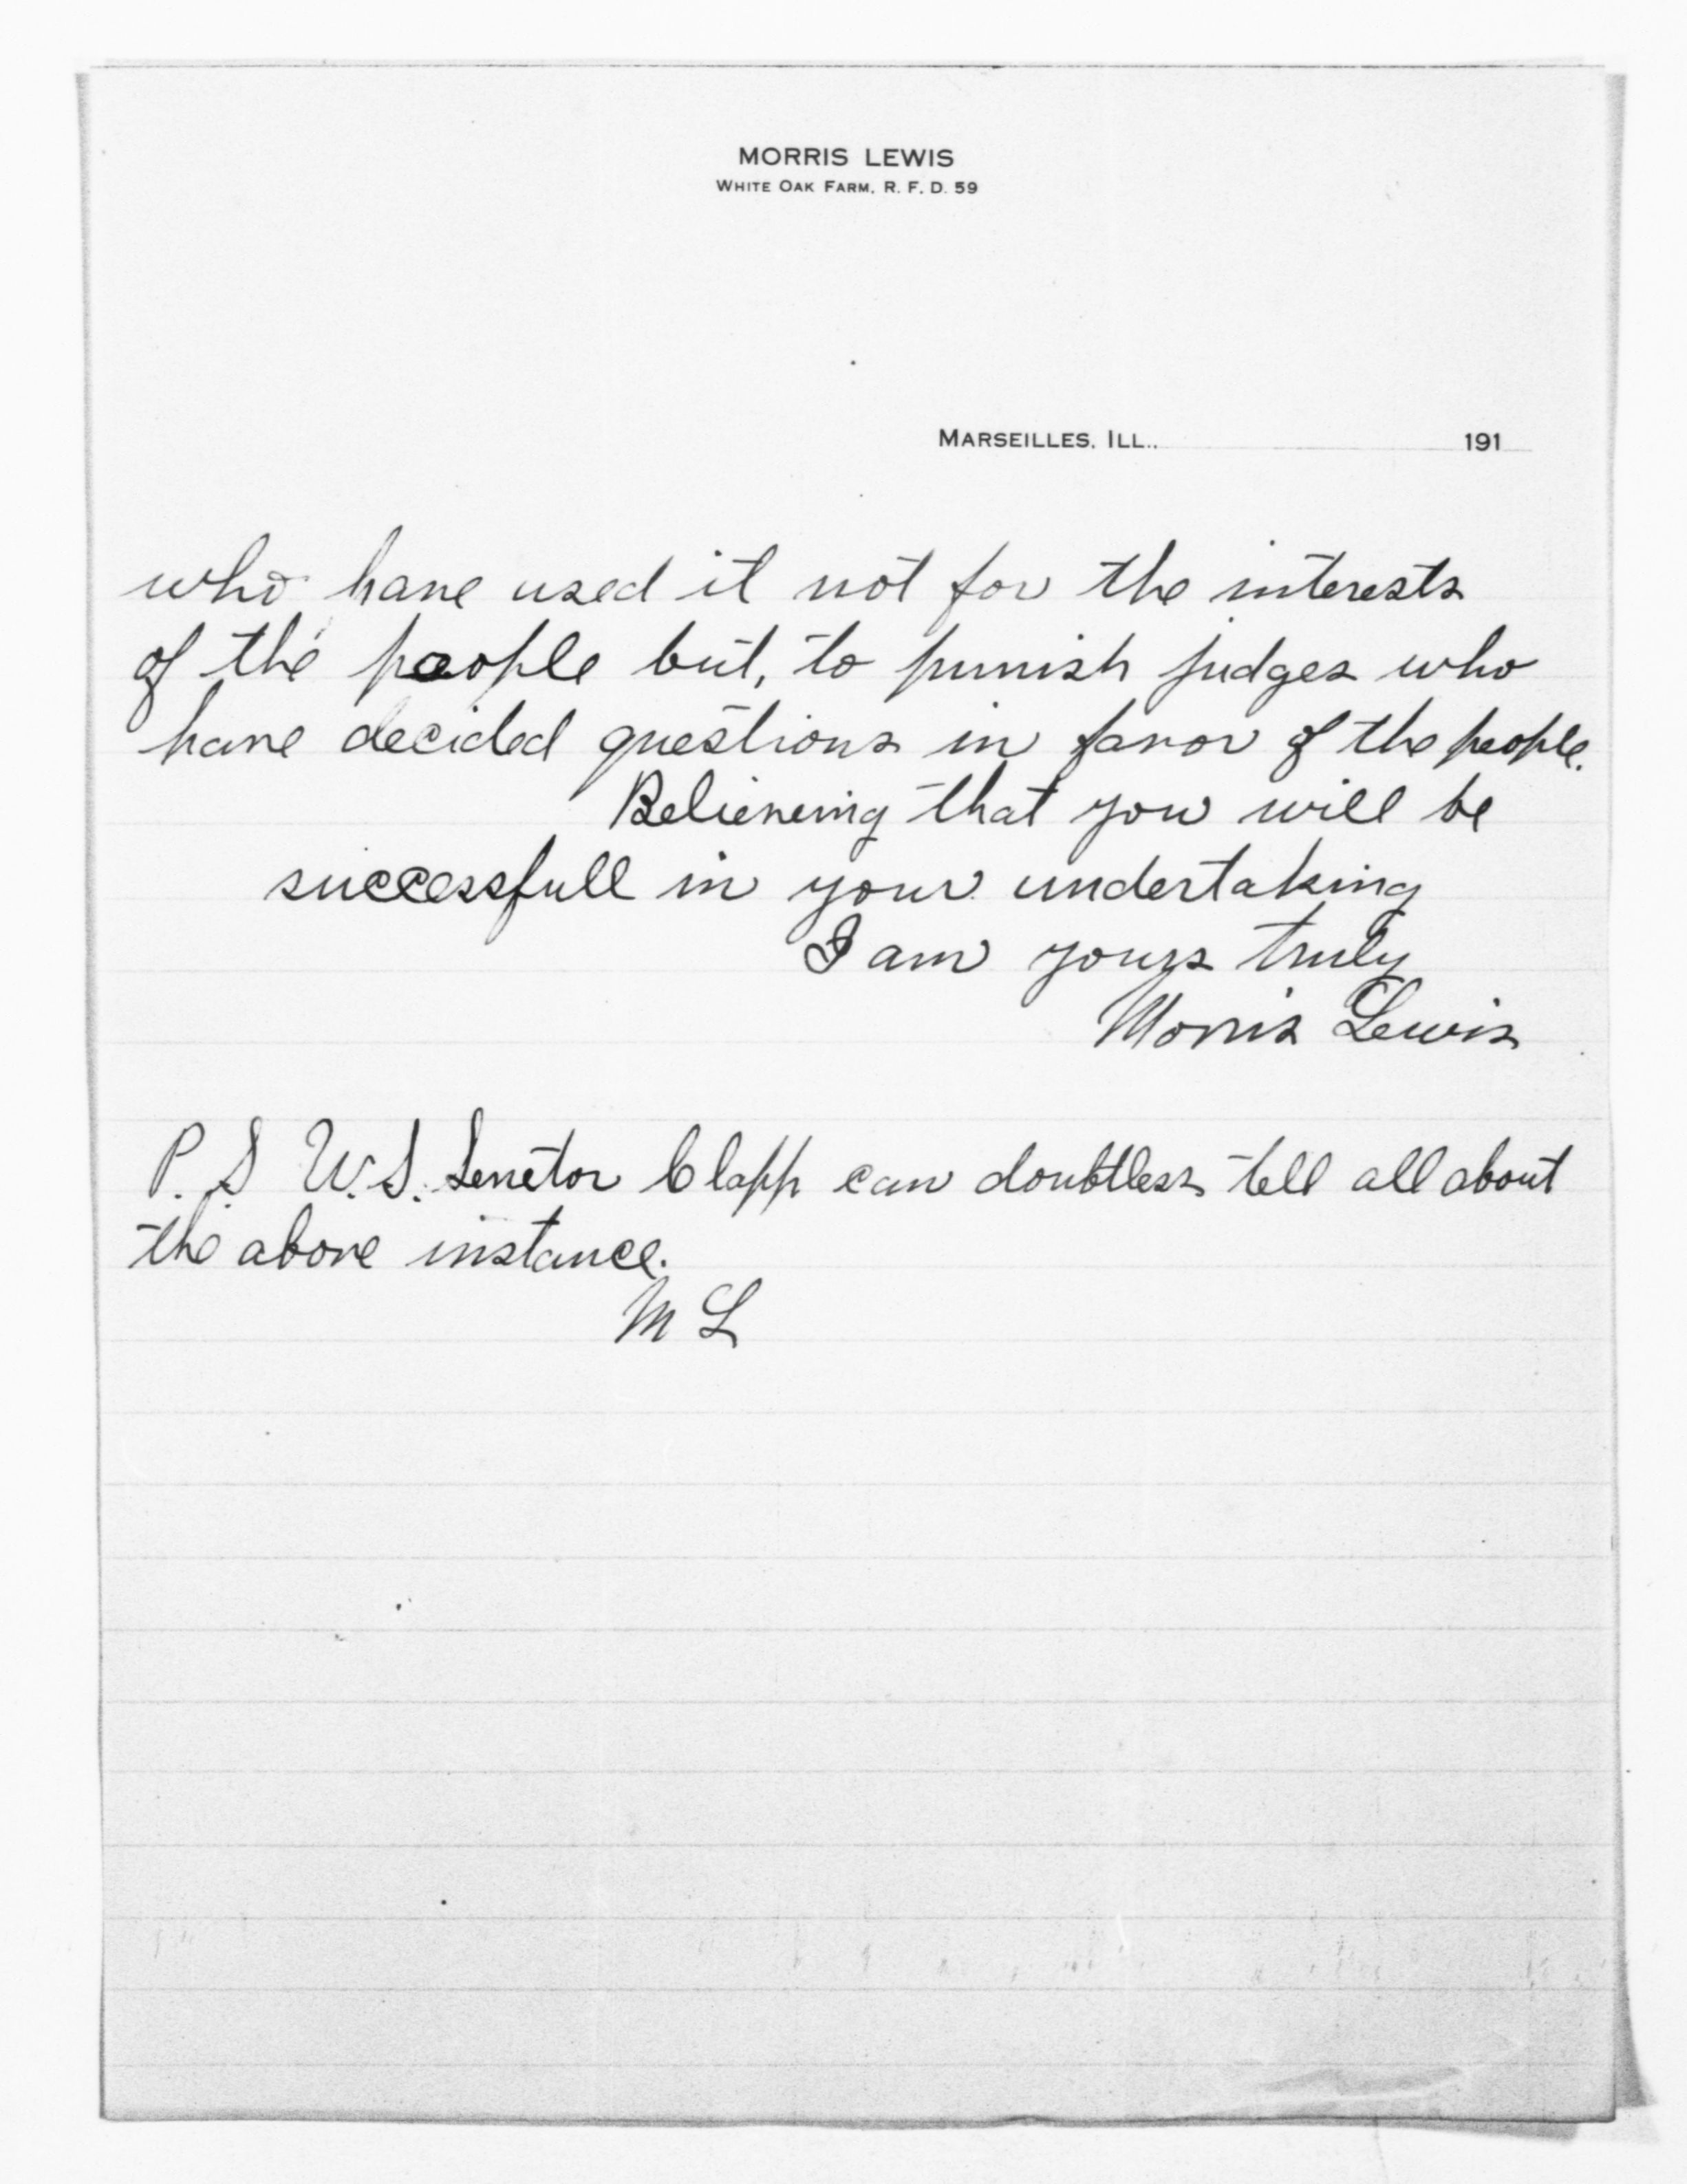 MORRIS LEWIS
WHITE OAK FARM, R. F. D. 59
MARSEILLES, ILL., 191
who have used it not for the interests
of the people but, to punish judges who
have decided questions in favor of the people.
Believeing that you will be
successfull in your undertaking
I am yours truly
Morris Lewis
P. S U.S. Senetor Clapp can doubtless tell all about
the above instance.
M L